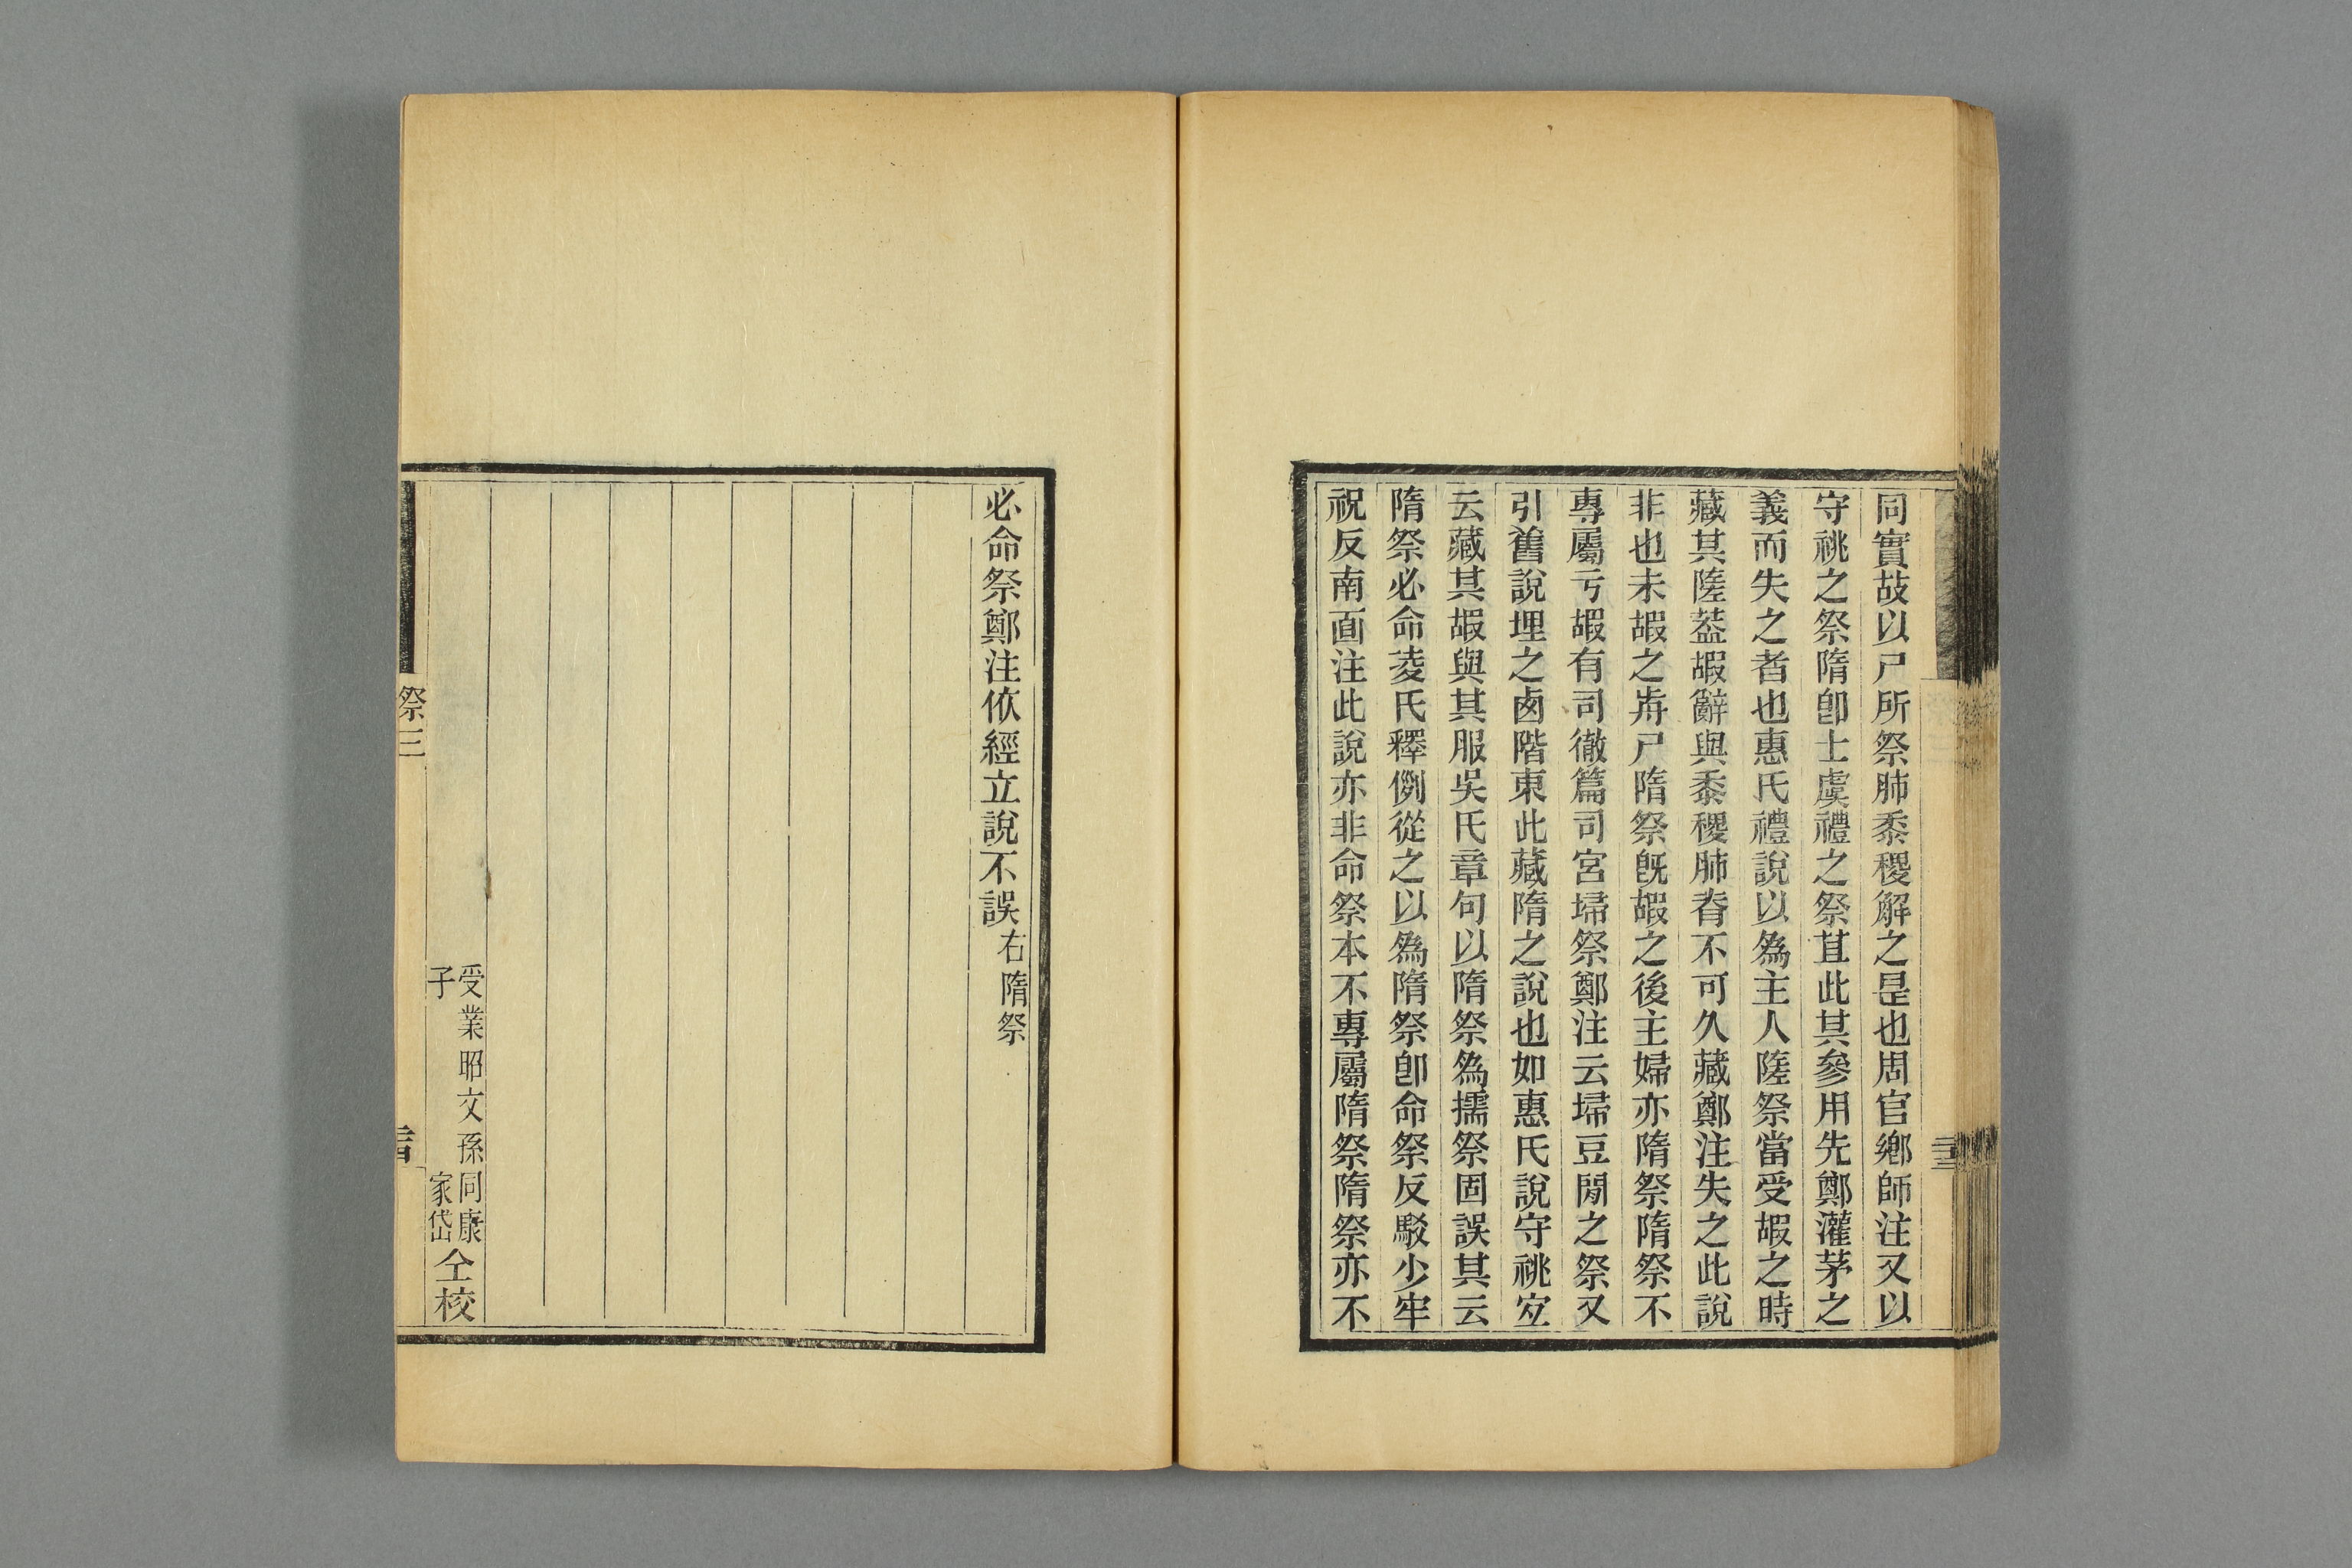 同實故以尸所祭肺黍稷解之是也周官鄉師注又以
守祧之祭隋卽士虞禮之祭苴此其參用先鄭灌茅之
義而失之者也惠氏禮說以爲主人墮祭當受嘏之時
藏其墮葢嘏辭與黍稷肺脊不可久藏鄭注失之此說
非也未嘏之歬尸隋祭旣嘏之後主婦亦隋祭隋祭不
專屬亏嘏有司徹篇司宮埽祭鄭注云埽豆閒之祭又
引舊說埋之㢴階東此藏隋之說也如惠氏說守祧宐
云藏其嘏與其服吳氏章句以隋祭爲擩祭固誤其云
隋祭必命淩氏釋例從之以爲隋祭卽命祭反駁少牢
祝反南面注此說亦非命祭本不專屬隋祭隋祭亦不
必命祭鄭注依經立說不誤右隋祭
受業昭文孫同康
子家岱
仝校
祭三